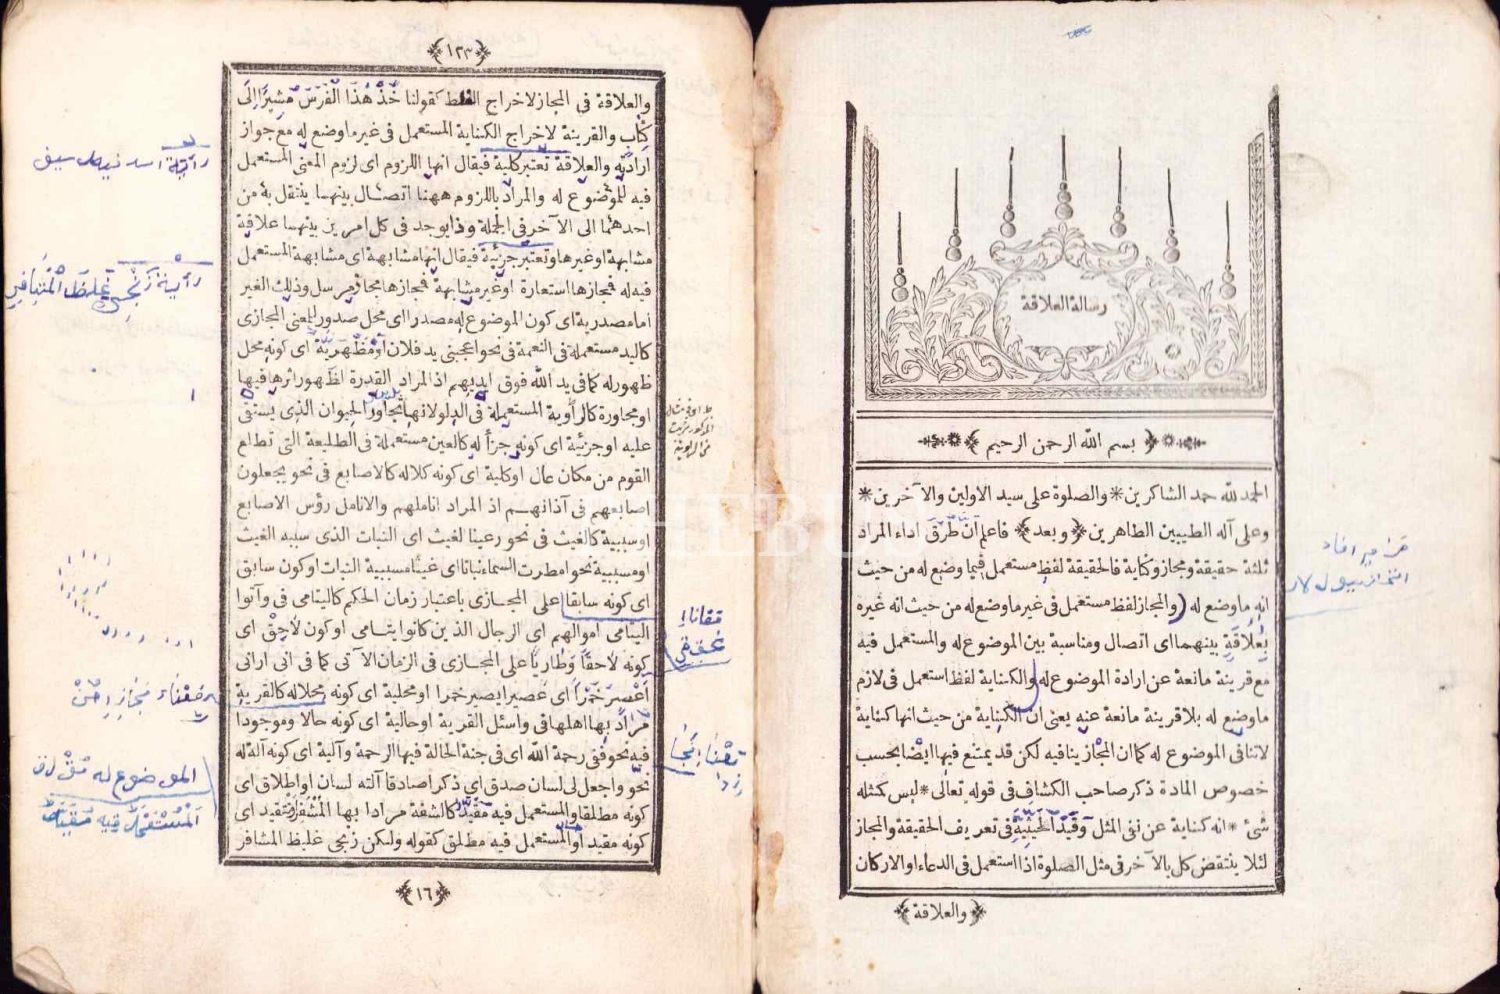 رسالة العلاقة
بسم الله الرحمن الرحيم
الحمد لله حمد الشاكرين * والصلوة على سيد الاولين والآخرين *
وعلى آله الطيبين الطاهرين ﴿ وبعد ﴾ فاعلم ان طرق اداء المراد
ثلثة حقيقة ومجاز وكناية فالحقيقة لفظ مستعمل فيما وضع له من حيث
انه ما وضع له ( والمجاز لفظ مستعمل فى غير ما وضع له من حيث انه غيره
بعلاقة بينهما اى اتصال ومناسبة بين الموضوع له والمستعمل فيه
مع قرينة مانعة عن ارادة الموضوع له والكناية لفظ استعمل فى لازم
ما وضع له بلا قرينة مانعة عنه يعنى ان الكناية من حيث انها كناية
لا تنافى الموضوع له كما ان المجاز ينافيه لكن قد يمتنع فيها ايضا بحسب
خصوص المادة ذكر صاحب الكشاف فى قوله تعالى * ليس كمثله
شئ * انه كناية عن نفى المثل وَقَيْدُ الحيثية فى تعريف الحقيقة والمجاز
لئلا ينتقض كل بالآخر فى مثل الصلوة اذا استعمل فى الدعاء او الاركان
﴿ والعلاقة ﴾
﴿ ١٢٣ ﴾
والعلاقة فى المجاز لاخراج الغلط كقولنا خُذْ هٰذَا الْفَرَسَ مُشِيرًا اِلَى
كِتَابٍ والقرينة لاخراج الكناية المستعمل فى غير ما وضع له مع جواز
ارادته والعلاقة تعتبر كلية فيقال انها اللزوم اى لزوم المعنى المستعمل
فيه للموضوع له والمراد باللزوم ههنا اتصال بينهما ينتقل به من
احدهما الى الآخر فى الجملة وذا يوجد فى كل امرين بينهما علاقة
مشابهة او غيرها وتعتبر جزئية فيقال انها مشابهة اى مشابهة المستعمل
فيه له فمجازها استعارة او غير مشابهة فمجازها مجاز مرسل وذلك الغير
اما مصدرية اى كون الموضوع له مصدرا اى محل صدور للمعنى المجازى
كاليد مستعملة فى النعمة فى نحو اعجبنى يد فلان او مَظْهَرِيَّة اى كونه محل
ظهور له كما فى يد الله فوق ايديهم اذ المراد القدرة اظهور اثرها فيها
او مجاورة كالراوية المستعملة فى الدلو لانها تجاور الحيوان الذى يستقى
عليه او جزئية اى كونه جزأ له كالعين مستعملة فى الطليعة التى تطلع
القوم من مكان عال او كلية اى كونه كلا له كالاصابع فى نحو يجعلون
اصابعهم فى آذانهم اذ المراد اناملهم والانامل رؤس الاصابع
او سببية كالغيث فى نحو رعينا لغيث اى النبات الذى سببه الغيث
او مسببية نحو امطرت السماء نباتا اى غيثا مسببية النبات او كون سابق
اى كونه سابقا على المجازى باعتبار زمان الحكم كاليتامى فى وآتوا
اليتامى اموالهم اى الرجال الذين كانوا يتامى او كون لاحق اى
كونه لاحقا وطاريا على المجازى فى الزمان الآتى كما فى انى ارانى
اَعْصِرُ خَمْرًا اى عصيرا يصير خمرا او محلية اى كونه محلا له كالقرية
مُرَادً بها اهلها فى واسئل القرية او حالية اى كونه حالا وموجودا
فيه نحو ففى رحمة الله اى فى جنة الحالة فيها الرحمة وآلية اى كونه آلة له
نحو واجعل لى لسان صدق اى ذكرا صادقا آلته لسان او اطلاق اى
كونه مطلقا والمستعمل فيه مقيدا كالشفة مرادا بها المشفر او تقييد اى
كونه مقيدا والمستعمل فيه مطلق كقوله ولكن زنجى غليظ المشافر
﴿ ١٦ ﴾